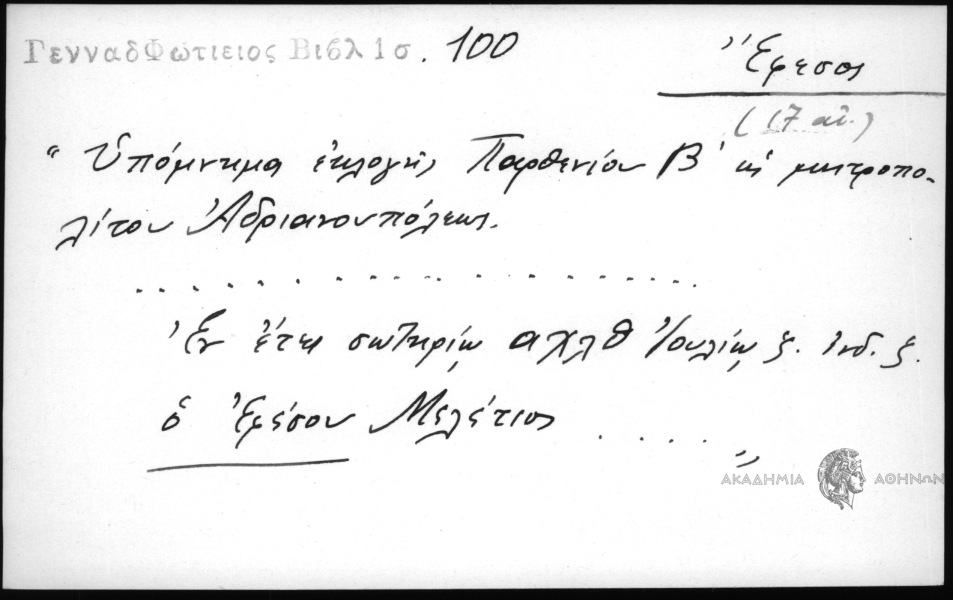 ΓενναδΦωτιειος Βιβλ 1σ. 100
Ἔφεσος
(17 αἰ.)
"Ὑπόμνημα ἐκλογῆς Παρθενίου Β' ὡς μητροπο-
λίτου Ἀδριανουπόλεως.
. . . . . . . . . . . . . . . .
Ἐν ἔτει σωτηρίῳ αχλθ Ἰουλίῳ ξ. ἰνδ. ξ.
ὁ Ἐφέσου Μελέτιος . . . . "
ΑΚΑΔΗΜΙΑ ΑΘΗΝΩΝ